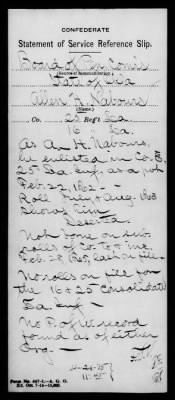 CONFEDERATE
Statement of Service Reference Slip.
Board of Pensions
State of La
(Source of communication.)
Allen H. Nabours
(Name.)
Co. 25 Reg't La
16 La.
As A. H. Nabours,
he enlisted in Co. B,
25 La. Inf., as a pvt
Feb. 27, 1862 -
Roll July & Aug. 1863
Shows him
Deserted.
Not borne on sub.
rolls of Co. to & inc.
Feb. 28, 1865, last on file.
No rolls on file for
the 16 & 25 Consolidated
La. Inf -
No P. of W. record
found as of either
Org -
4-24-15
11-15
Form No. 467-1—A. G. O.
Ed. Oct. 7-14—15,000.